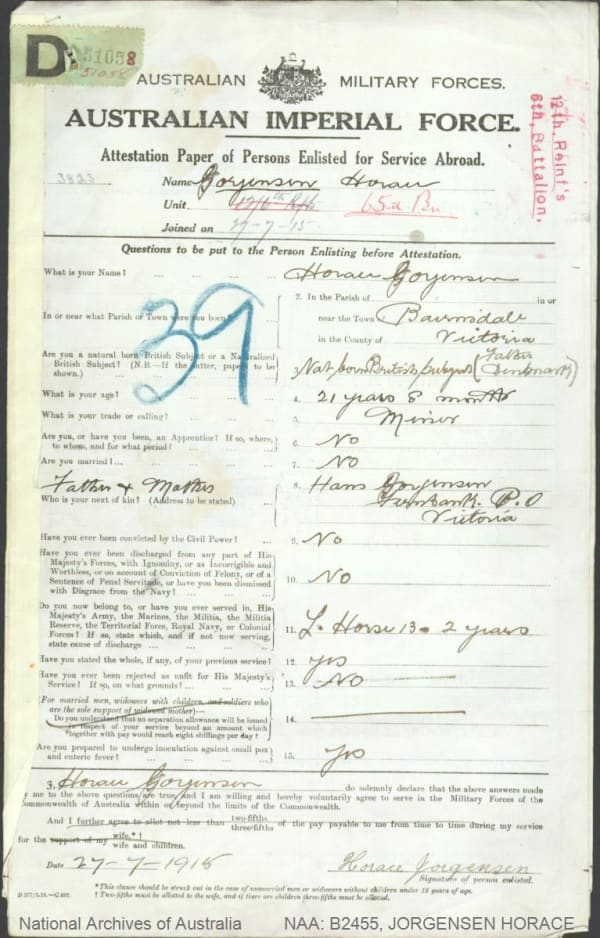 D 51058
51058
AUSTRALIAN MILITARY FORCES.
AUSTRALIAN IMPERIAL FORCE.
12th. Reint's
6th. Battalion.
Attestation Paper of Persons Enlisted for Service Abroad.
3823
Name Jorgensen Horace
Unit 12/6th Rfts 65th Bn.
Joined on 27-7-15
Questions to be put to the Person Enlisting before Attestation.
What is your Name? ... ... ... ... Horace Jorgensen
39
2. In the Parish of in or
In or near what Parish or Town were you born? near the Town of Bairnsdale
in the County of Victoria
Are you a natural born British Subject or a Naturalized British Subject? (N.B.—If the latter, papers to be shown.) 3. Nat born British subject (Father
What is your age? 4. 21 years 8 months
What is your trade or calling? 5. Miner
Are you, or have you been, an Apprentice? If so, where, to whom, and for what period? 6. No
Are you married? 7. No
Father & Mother 8. Hans Jorgensen
Who is your next of kin? (Address to be stated) P.O
Victoria
Have you ever been convicted by the Civil Power? 9. No
Have you ever been discharged from any part of His
Majesty's Forces, with Ignominy, or as Incorrigible and
Worthless, or on account of Conviction of Felony, or of a 10. No
Sentence of Penal Servitude, or have you been dismissed
with Disgrace from the Navy?
Do you now belong to, or have you ever served in, His
Majesty's Army, the Marines, the Militia, the Militia
Reserve, the Territorial Force, Royal Navy, or Colonial 11. L. Horse 13 - 2 years
Forces? If so, state which, and if not now serving,
state cause of discharge
Have you stated the whole, if any, of your previous service? 12. yes
Have you ever been rejected as unfit for His Majesty's
Service? If so, on what grounds? 13. No
(For married men, widowers with children, and soldiers who
are the sole support of widowed mother)—
Do you understand that no separation allowance will be issued 14.
in respect of your service beyond an amount which
together with pay would reach eight shillings per day?
Are you prepared to undergo inoculation against small pox
and enteric fever? 15. Yes
I, Horace Jorgensen do solemnly declare that the above answers made
by me to the above questions are true, and I am willing and hereby voluntarily agree to serve in the Military Forces of the
Commonwealth of Australia within or beyond the limits of the Commonwealth.
And I further agree to allot not less than two-fifths three/fifths of the pay payable to me from time to time during my service
for the support of my wife.*† wife and children.
Date 27-7-1915 Horace Jorgensen
Signature of person enlisted.
*This clause should be struck out in the case of unmarried men or widowers without children under 18 years of age.
† Two-fifths must be allotted to the wife, and if there are children three-fifths must be allotted.
National Archives of Australia NAA: B2455, JORGENSEN HORACE